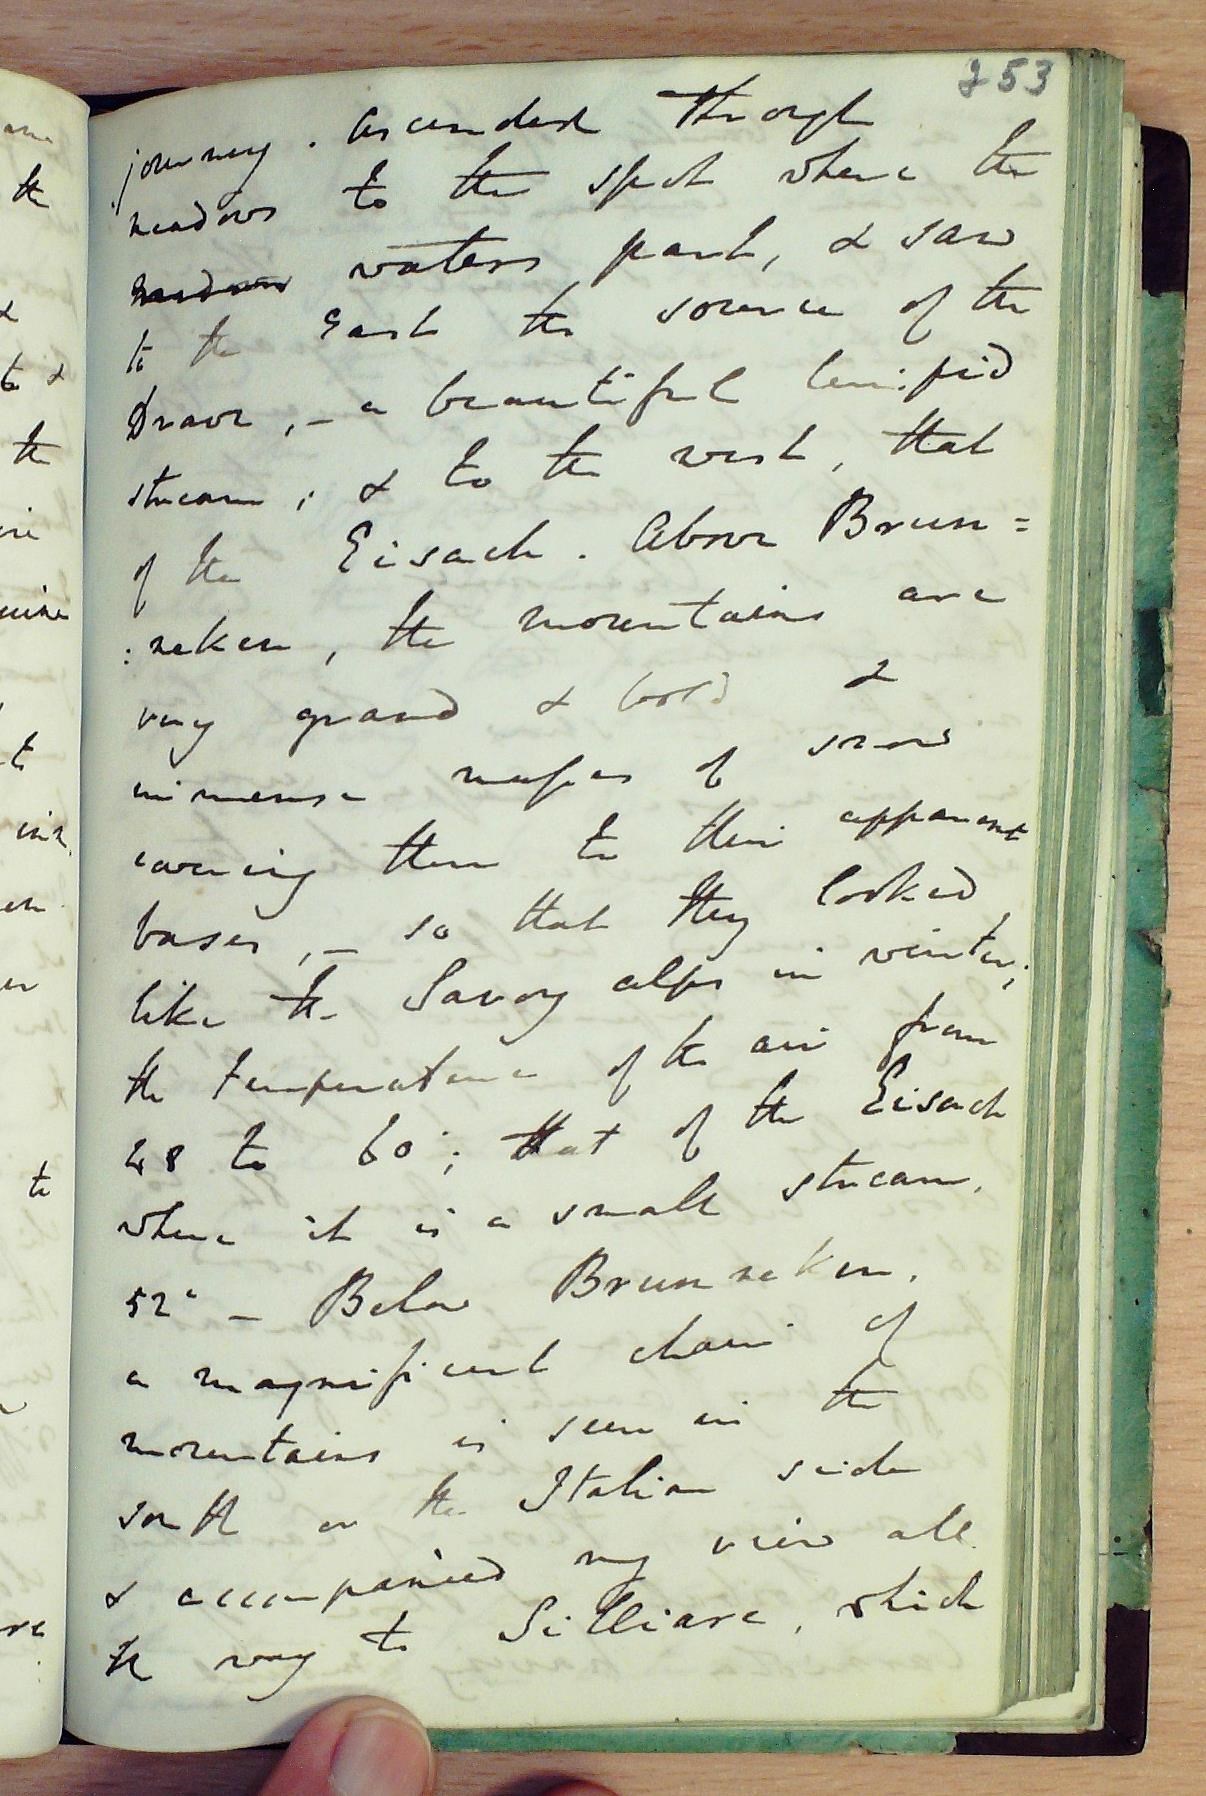 253
journey. Ascended through
meadows to the spot where the
meadows waters part, & saw
to the East the source of the
Drave, – a beautiful limpid
stream; & to the west, that
of the Eisach. Above Brun=
:neken, the mountains are
very grand & bold &
immense masses of snow
covering them to their apparent
bases, – so that they looked
like the Savoy alps in winter;
the temperature of the air from
48 to 60°; that of the Eisach
where it is a small stream,
52° – Below Brunneken,
a magnificent chain of
mountains is seen in the
south or the Italian side
& accompanied my view all
the way to Silliare, which